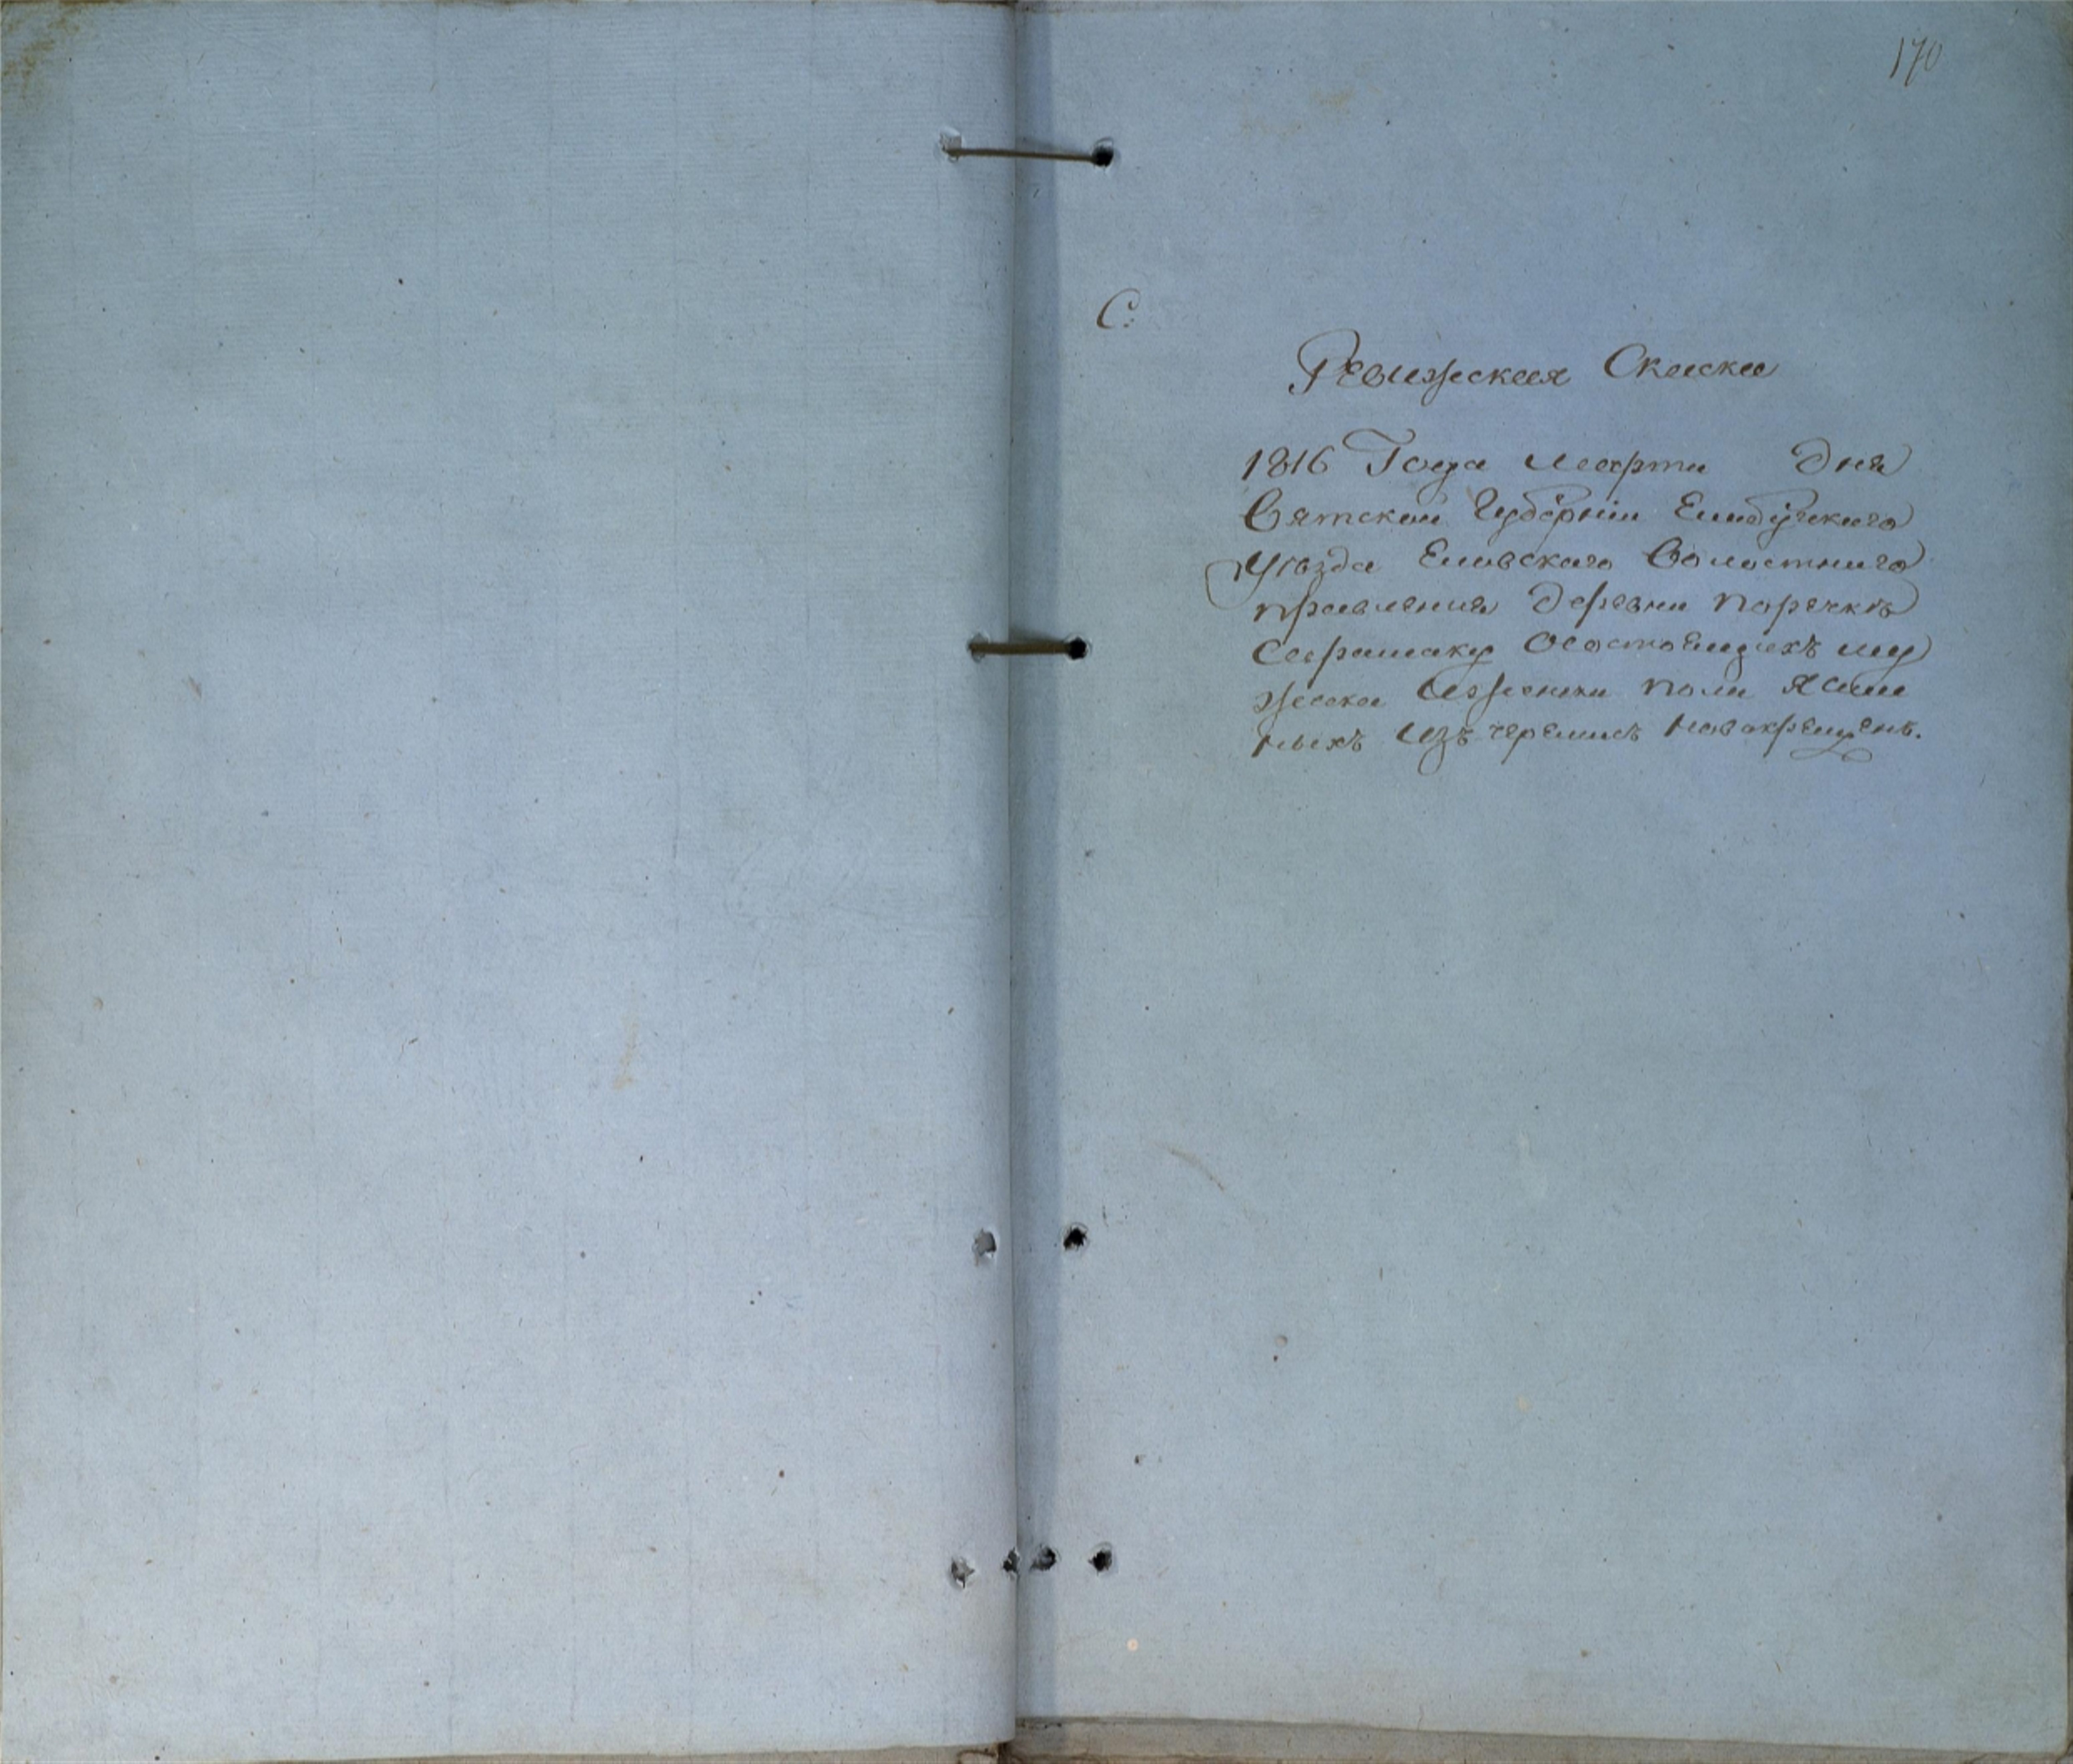 170
С:
Ревижская Скаска
1816 Года марта дня
Вятской Губернїи Елабужскаго
Уѣзда Еловскаго Волостнаго
правления деревни поречкѣ
Сарамаку Осостоящихъ му
жеска Иженска пола Ясаш
ныхъ Изъ черемисъ новокрещенъ.